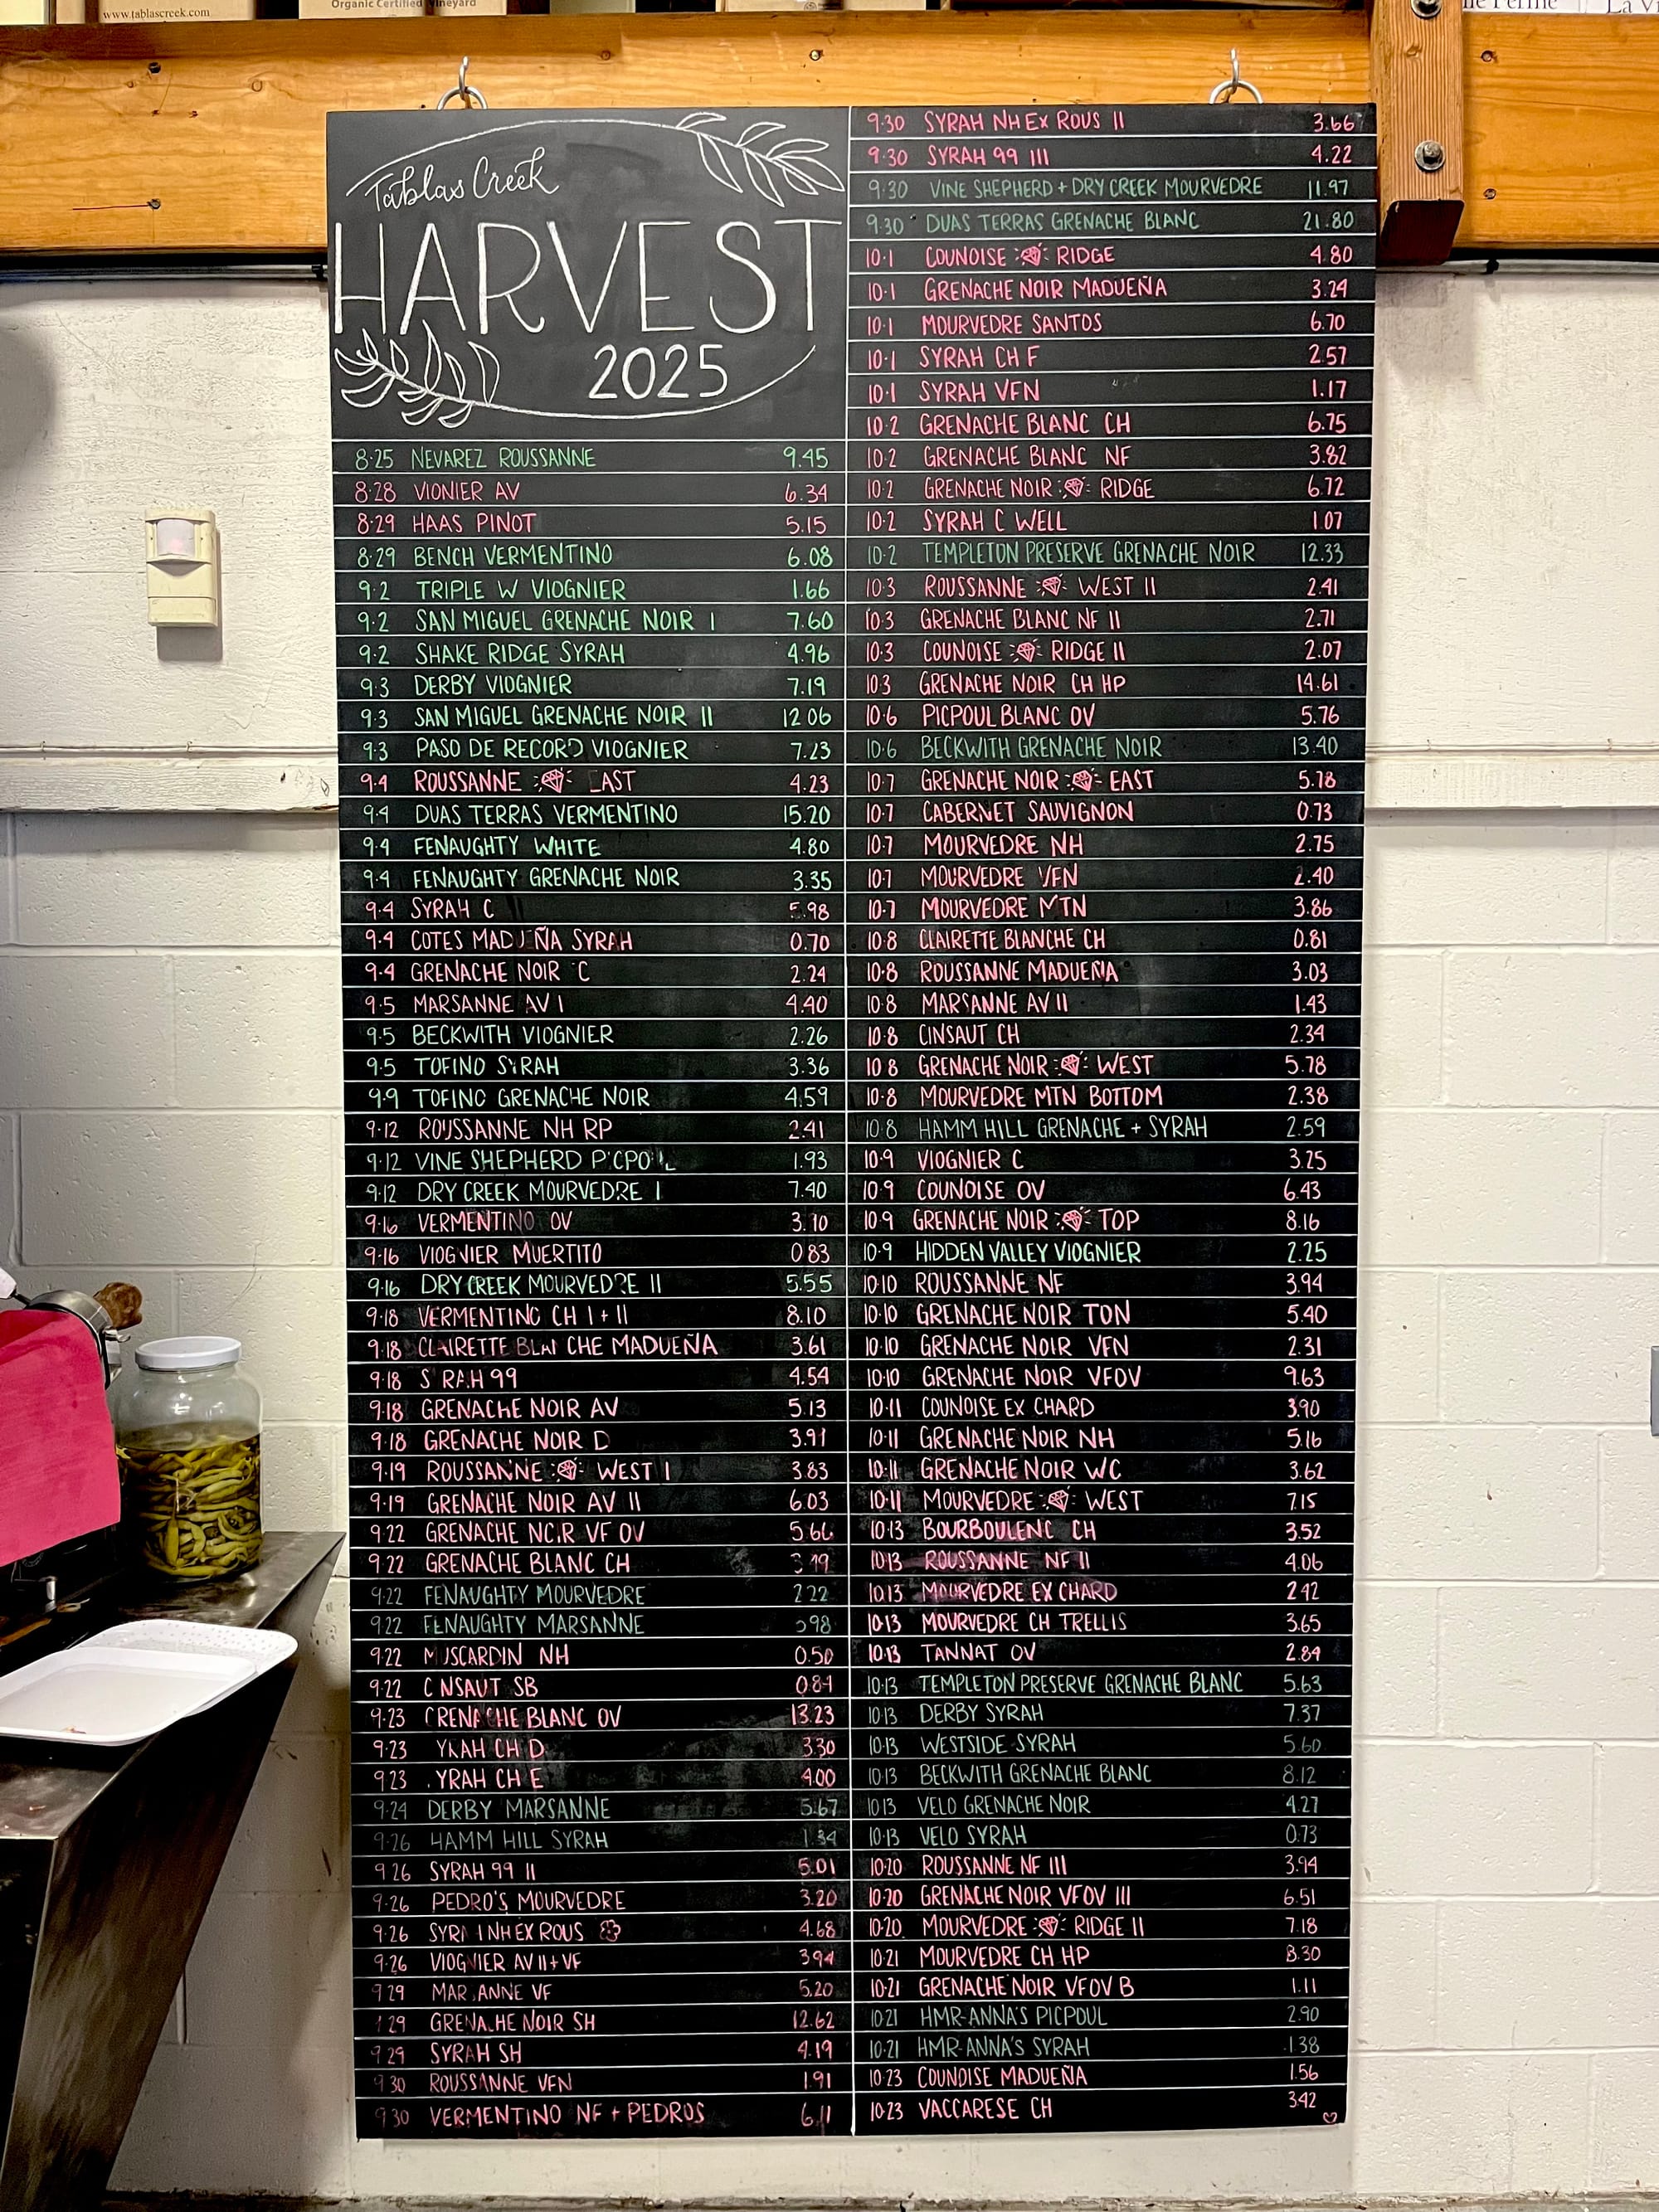 www.tablascreek.com
Organic Certified Vineyard
La Vi
Tablas Creek
HARVEST
2025
8·25 NEVAREZ ROUSSANNE 9.45
8·28 VIONIER AV 6.34
8·29 HAAS PINOT 5.15
8·29 BENCH VERMENTINO 6.08
9·2 TRIPLE W VIOGNIER 1.66
9·2 SAN MIGUEL GRENACHE NOIR I 7.60
9·2 SHAKE RIDGE SYRAH 4.96
9·3 DERBY VIOGNIER 7.19
9·3 SAN MIGUEL GRENACHE NOIR II 12 06
9·3 PASO DE RECORD VIOGNIER 7.23
9·4 ROUSSANNE EAST 4.23
9·4 DUAS TERRAS VERMENTINO 15.20
9·4 FENAUGHTY WHITE 4.80
9·4 FENAUGHTY GRENACHE NOIR 3.35
9·4 SYRAH C 5.98
9·4 COTES MADUEÑA SYRAH 0.70
9·4 GRENACHE NOIR C 2.24
9·5 MARSANNE AV I 4.40
9·5 BECKWITH VIOGNIER 2.26
9·5 TOFINO SYRAH 3.36
9·9 TOFINO GRENACHE NOIR 4.59
9·12 ROUSSANNE NH RP 2.41
9·12 VINE SHEPHERD PICPOUL 1.93
9·12 DRY CREEK MOURVEDRE I 7.40
9·16 VERMENTINO OV 3.10
9·16 VIOGNIER MUERTITO 0 83
9·16 DRY CREEK MOURVEDRE II 5.55
9·18 VERMENTINO CH I + II 8.10
9·18 CLAIRETTE BLANCHE MADUEÑA 3.61
9·18 SYRAH 99 4.54
9·18 GRENACHE NOIR AV 5.13
9·18 GRENACHE NOIR D 3.91
9·19 ROUSSANNE WEST I 3.83
9·19 GRENACHE NOIR AV II 6.03
9·22 GRENACHE NOIR VF OV 5.66
9·22 GRENACHE BLANC CH
9·22 FENAUGHTY MOURVEDRE 2 22
9·22 FENAUGHTY MARSANNE
9·22 MUSCARDIN NH 0.50
9·22 CINSAUT SB
9·23 GRENACHE BLANC OV 13.23
9·23 SYRAH CH D 3.30
9 23 SYRAH CH E 4.00
9·24 DERBY MARSANNE 5.67
9·26 HAMM HILL SYRAH 1.34
9 26 SYRAH 99 II 5.01
9·26 PEDRO'S MOURVEDRE 3.20
9·26 SYRAH NH EX ROUS 4.68
9·26 VIOGNIER AV II + VF 3.94
9 29 MARSANNE VF 5.20
9 29 GRENACHE NOIR SH 12.62
9 29 SYRAH SH 4.19
9 30 ROUSSANNE VFN 1.91
9 30 VERMENTINO NF + PEDROS 6.11
9·30 SYRAH NH EX ROUS II 3.66
9·30 SYRAH 99 III 4.22
9·30 VINE SHEPHERD + DRY CREEK MOURVEDRE 11.97
9·30 DUAS TERRAS GRENACHE BLANC 21.80
10·1 COUNOISE RIDGE 4.80
10·1 GRENACHE NOIR MADUEÑA 3.29
10·1 MOURVEDRE SANTOS 6.70
10·1 SYRAH CH F 2.57
10·1 SYRAH VFN 1.17
10·2 GRENACHE BLANC CH 6.75
10·2 GRENACHE BLANC NF 3.82
10·2 GRENACHE NOIR RIDGE 6.72
10·2 SYRAH C WELL 1.07
10·2 TEMPLETON PRESERVE GRENACHE NOIR 12.33
10·3 ROUSSANNE WEST II 2.41
10·3 GRENACHE BLANC NF II 2.71
10·3 COUNOISE RIDGE II 2.07
10·3 GRENACHE NOIR CH HP 14.61
10·6 PICPOUL BLANC OV 5.76
10·6 BECKWITH GRENACHE NOIR 13.40
10·7 GRENACHE NOIR EAST 5.78
10·7 CABERNET SAUVIGNON 0.73
10·7 MOURVEDRE NH 2.75
10·7 MOURVEDRE VFN 2.40
10·7 MOURVEDRE MTN 3.86
10·8 CLAIRETTE BLANCHE CH 0.81
10·8 ROUSSANNE MADUEÑA 3.03
10·8 MARSANNE AV II 1.43
10·8 CINSAUT CH 2.34
10 8 GRENACHE NOIR WEST 5.78
10·8 MOURVEDRE MTN BOTTOM 2.38
10·8 HAMM HILL GRENACHE + SYRAH 2.59
10·9 VIOGNIER C 3.25
10·9 COUNOISE OV 6.43
10·9 GRENACHE NOIR TOP 8.16
10·9 HIDDEN VALLEY VIOGNIER 2.25
10·10 ROUSSANNE NF 3.94
10·10 GRENACHE NOIR TON 5.40
10·10 GRENACHE NOIR VFN 2.31
10·10 GRENACHE NOIR VFOV 9.63
10·11 COUNOISE EX CHARD 3.90
10·11 GRENACHE NOIR NH 5.16
10·11 GRENACHE NOIR WC 3.62
10·11 MOURVEDRE WEST 7.15
10·13 BOURBOULENC CH 3.52
10·13 ROUSSANNE NF II 4.06
10·13 MOURVEDRE EX CHARD 2 92
10·13 MOURVEDRE CH TRELLIS 3.65
10·13 TANNAT OV 2.84
10·13 TEMPLETON PRESERVE GRENACHE BLANC 5.63
10·13 DERBY SYRAH 7.37
10·13 WESTSIDE SYRAH 5.60
10·13 BECKWITH GRENACHE BLANC 8.12
10·13 VELO GRENACHE NOIR 4.27
10·13 VELO SYRAH 0.73
10·20 ROUSSANNE NF III 3.94
10·20 GRENACHE NOIR VFOV III 6.51
10·20 MOURVEDRE RIDGE II 7.18
10·21 MOURVEDRE CH HP 8.30
10·21 GRENACHE NOIR VFOV B 1.11
10·21 HMR-ANNA'S PICPOUL 2.90
10·21 HMR-ANNA'S SYRAH 1.38
10·23 COUNOISE MADUEÑA 1.56
10·23 VACCARESE CH 3.42